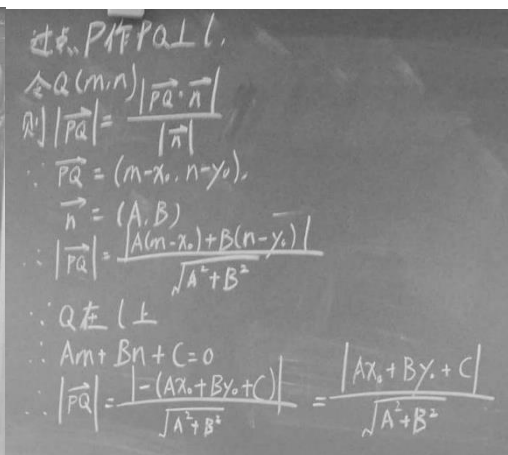 过点P作PQ⊥l,
令Q(m,n)
则|PQ⃗|=|PQ⃗·n⃗|/|n⃗|
∵PQ⃗=(m-x₀,n-y₀),
n⃗=(A,B)
∴|PQ⃗|=|A(m-x₀)+B(n-y₀)|/√(A²+B²)
∵Q在l上
∴Am+Bn+C=0
∴|PQ⃗|=|-(Ax₀+By₀+C)|/√(A²+B²)=|Ax₀+By₀+C|/√(A²+B²)